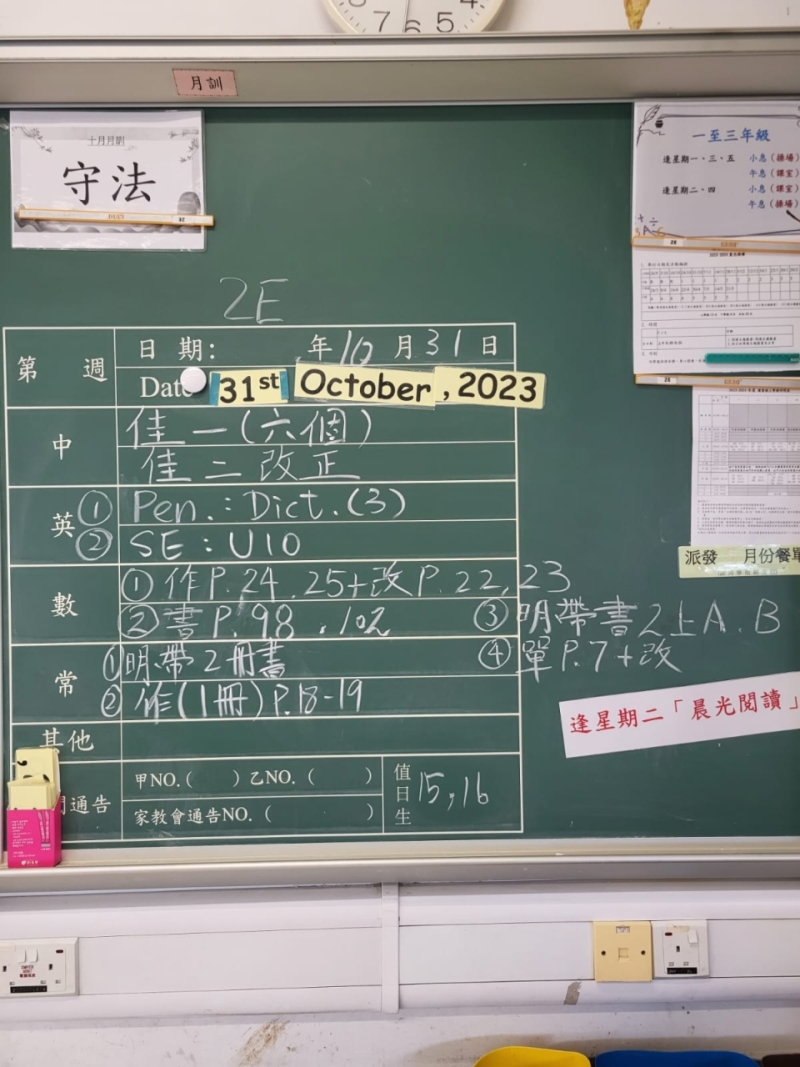 7 6 5
月訓
十月月訓
守法
一至三年級
逢星期一、三、五 小息（操場）
午息（課室）
逢星期二、四 小息（課室）
午息（操場）
2E
第 週
日 期： 年 10 月 31 日
Date
31st October , 2023
中
佳一（六個）
佳二改正
英
① Pen.: Dict.(3)
② SE : U10
數
① 作P.24, 25+改P.22, 23
② 書P.98, 102
③ 明帶書2上A, B
④ 單P.7+改
常
① 明帶2冊書
② 作(1冊) P.18-19
其他
通告
甲NO.( ) 乙NO.( )
家教會通告NO.( )
值日生
15, 16
派發 月份餐單
逢星期二「晨光閱讀」